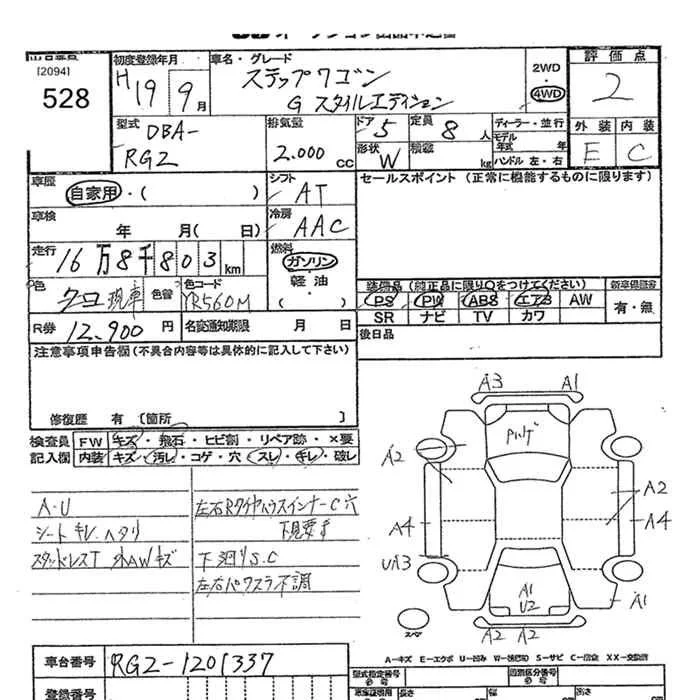 [2094]
528
初度登録年月
H19 9月
車名・グレード
ステップワゴン
G スタイルエディション
2WD
4WD
評価点
2
外装 内装
E C
型式 DBA-
RG2
排気量
2.000 CC
ドア 5
定員 8 人
形状 W
積載 kg
ディーラー・並行
モデル年式 年
ハンドル 左・右
車歴
自家用・( )
シフト
AT
車検
年 月( 日)
冷房
AAC
走行
16万8千803km
燃料
ガソリン・
軽油・
( )
色
クロ 現車
色替
色コード
YR560M
R券 12,900 円
名変通知期限 月 日
セールスポイント (正常に機能するものに限ります)
装備品 (純正品に限り○をつけてください)
PS PW ABS エアB AW
SR ナビ TV カワ
新車保証書
有・無
後日品
注意事項申告欄(不具合内容等は具体的に記入して下さい)
修復歴 有 [箇所 ]
検査員 FW キズ・飛石・ヒビ割・リペア跡・×要
記入欄 内装 キズ・汚レ・コゲ・穴・スレ・キレ・破レ
A・U
シート キレ、ヘタリ
スタッドレスT 外AWキズ
左右RタイヤハウスインナーC穴
下見要す
下廻りS.C
左右パワスラ不調
A3 A1
A2
A4
UA3
A2
A4
A1
A1
U2
A2 A2
スペア
A-キズ E-エクボ U-凹み W-波板 S-サビ C-腐食 XX-交換済
車台番号 RG2-1201337
登録番号
型式指定番号
必号
類別区分番号
必号
長さ
幅
高さ